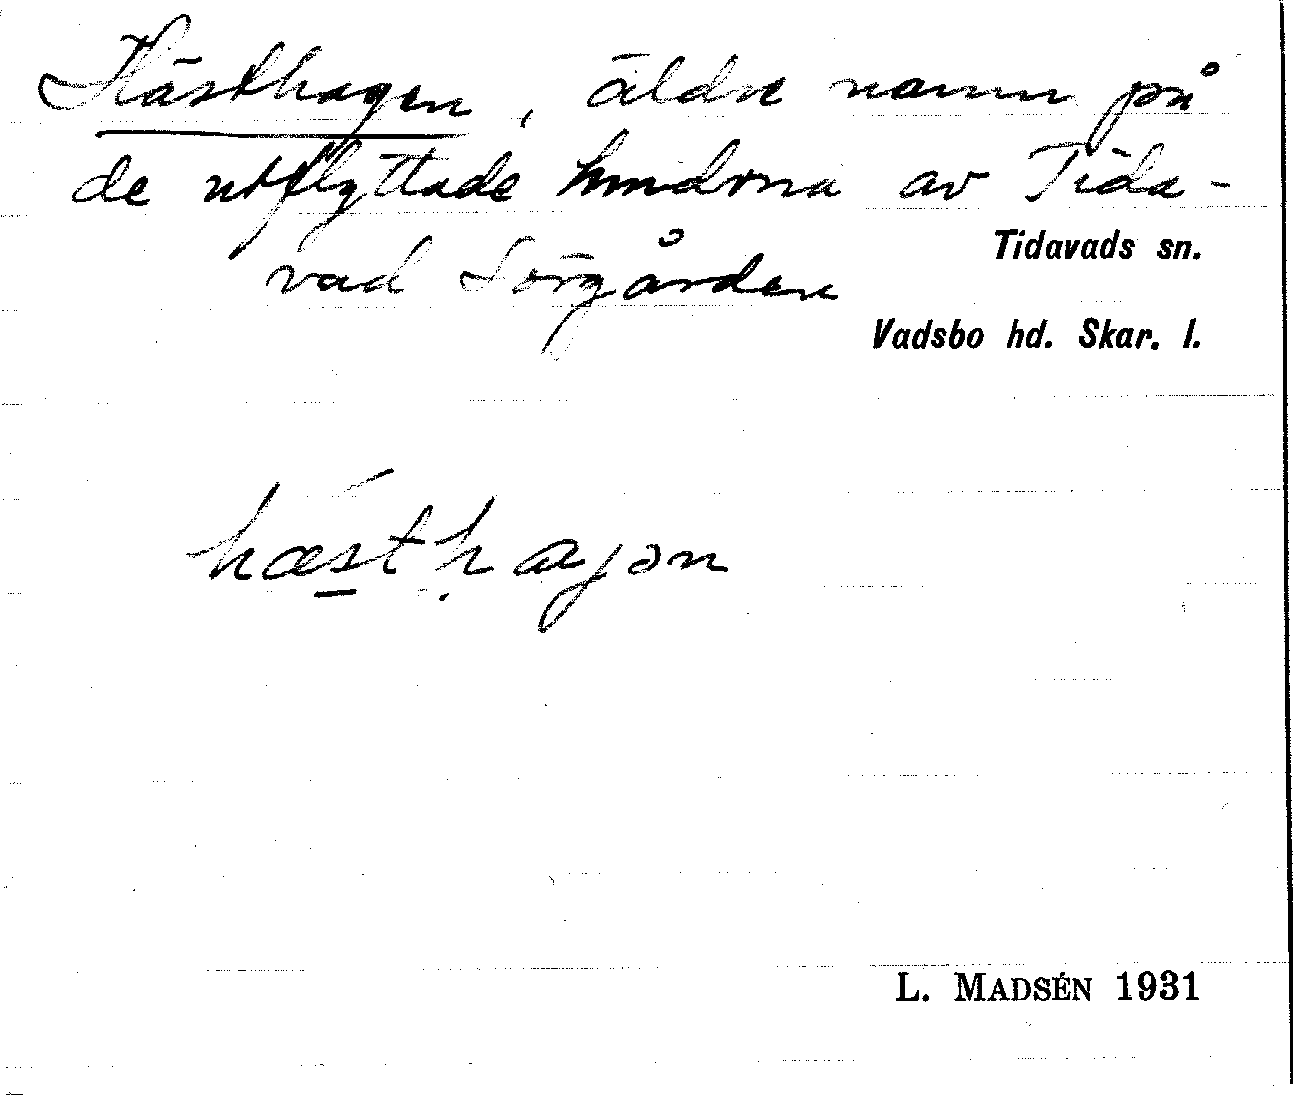 Hästhagen, äldre namn på
de utflyttade av Tida-
vad Sörgården
Tidavads sn.
Vadsbo hd. Skar. l.
hæsthagən
L. MADSÉN 1931